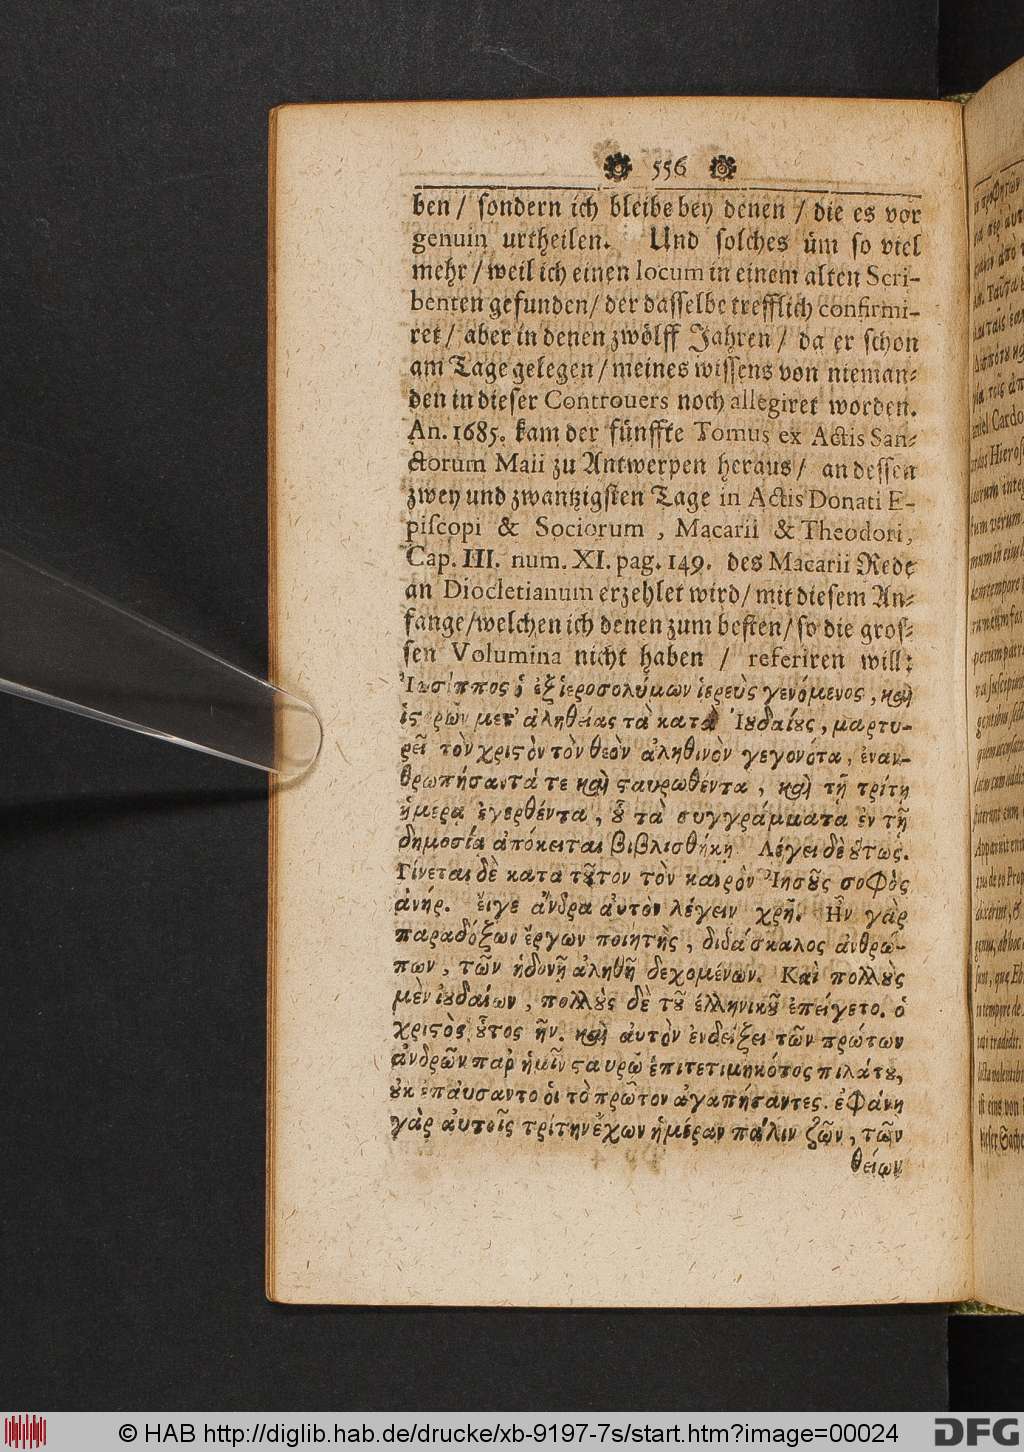 556
ben / sondern ich bleibe bey denen / die es vor
genuin urtheilen. Und solches üm so viel
mehr / weil ich einen locum in einem alten Scri-
benten gefunden / der dasselbe trefflich confirmi-
ret / aber in denen zwölff Jahren / da er schon
am Tage gelegen / meines wissens von nieman-
den in dieser Controuers noch allegiret worden.
An. 1685. kam der fünffte Tomus ex Actis San-
ctorum Maii zu Antwerpen heraus / an dessen
zwey und zwantzigsten Tage in Actis Donati E-
piscopi & Sociorum, Macarii & Theodori,
Cap. III. num. XI. pag. 149. des Macarii Rede
an Diocletianum erzehlet wird / mit diesem An-
fange / welchen ich denen zum besten / so die gros-
sen Volumina nicht haben / referiren will:
ὁ ἐξ ἱεροσολύμων ἱερεὺς γενόμενος, καὶ
μετ' ἀληθείας τὰ κατὰ Ἰουδαίους, μαρτυ-
ρεῖ τὸν χριστὸν τὸν θεὸν ἀληθινὸν γεγονότα, ἐναν-
θρωπήσαντά τε καὶ σταυρωθέντα, καὶ τῇ τρίτῃ
ἡμέρᾳ ἐγερθέντα, οὗ τὰ συγγράμματα ἐν τῇ
δημοσίᾳ ἀπόκειται βιβλιοθήκῃ Λέγει δὲ οὕτως.
Γίνεται δὲ κατὰ τοῦτον τὸν καιρὸν Ἰησοῦς σοφὸς
ἀνήρ. εἴγε ἄνδρα αὐτὸν λέγειν χρῆ. Ἦν γὰρ
παραδόξων ἔργων ποιητὴς, διδάσκαλος ἀνθρώ-
πων, τῶν ἡδονῇ ἀληθῆ δεχομένων. Καὶ πολλοὺς
μὲν ἰουδαίων, πολλοὺς δὲ τοῦ ἑλληνικοῦ ἐπείγετο. ὁ
χριστὸς οὗτος ἦν. καὶ αὐτὸν ἐνδείξει τῶν πρώτων
ἀνδρῶν παρ' ἡμῖν σταυρῷ ἐπιτετιμηκότος πιλάτου,
οὐκ ἐπαύσαντο οἱ τὸ πρῶτον ἀγαπήσαντες. ἐφάνη
γὰρ αὐτοῖς τρίτην ἔχων ἡμέραν πάλιν ζῶν, τῶν
θείων
© HAB http://diglib.hab.de/drucke/xb-9197-7s/start.htm?image=00024
DFG